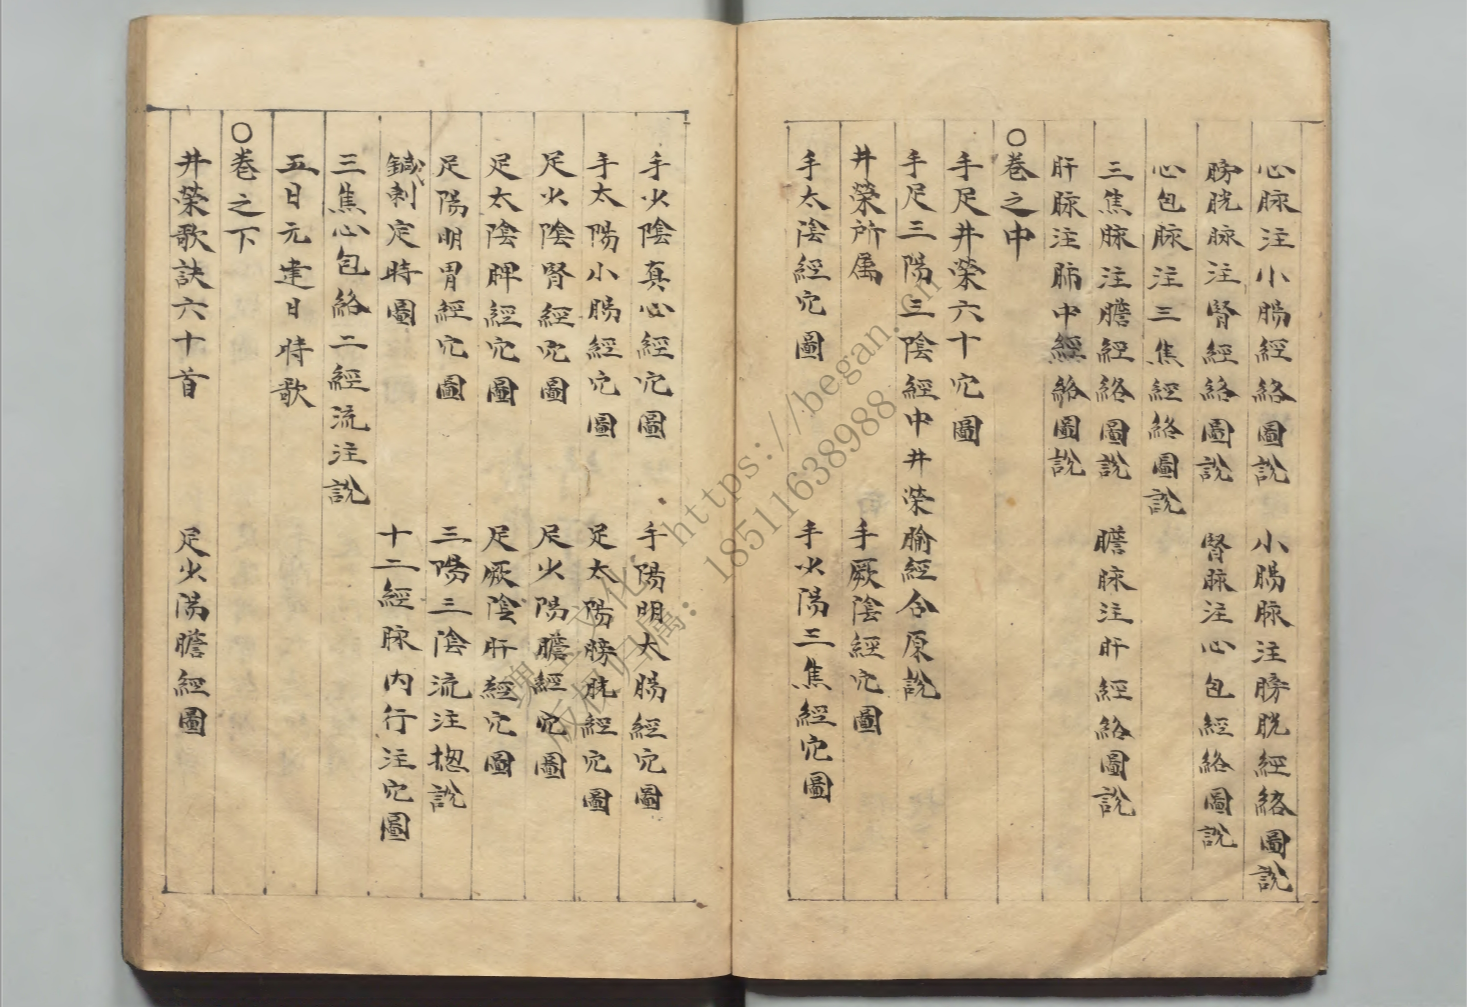 心脉注小膓經絡圖說　小膓脉注膀胱經絡圖說
膀胱脉注腎經絡圖說　腎脉注心包經絡圖說
心包脉注三焦經絡圖說
三焦脉注膽經絡圖說　膽脉注肝經絡圖說
肝脉注肺中經絡圖說
○卷之中
手足井榮六十穴圖
手足三陽三陰經中井榮腧經合原說
井榮所属　手厥陰經穴圖
手太陰經穴圖　手少陽三焦經穴圖
手少陰真心經穴圖　手陽明大膓經穴圖
手太陽小膓經穴圖　足太陽膀胱經穴圖
足少陰腎經穴圖　足少陽膽經穴圖
足太陰脾經穴圖　足厥陰肝經穴圖
足陽明胃經穴圖　三陽三陰流注揔說
鍼刺定時圖　十二經脉內行注穴圖
三焦心包絡二經流注說
五日元建日時歌
○卷之下
井榮歌訣六十首　足少陽膽經圖
https://began.cn
18511638988
版权归属: